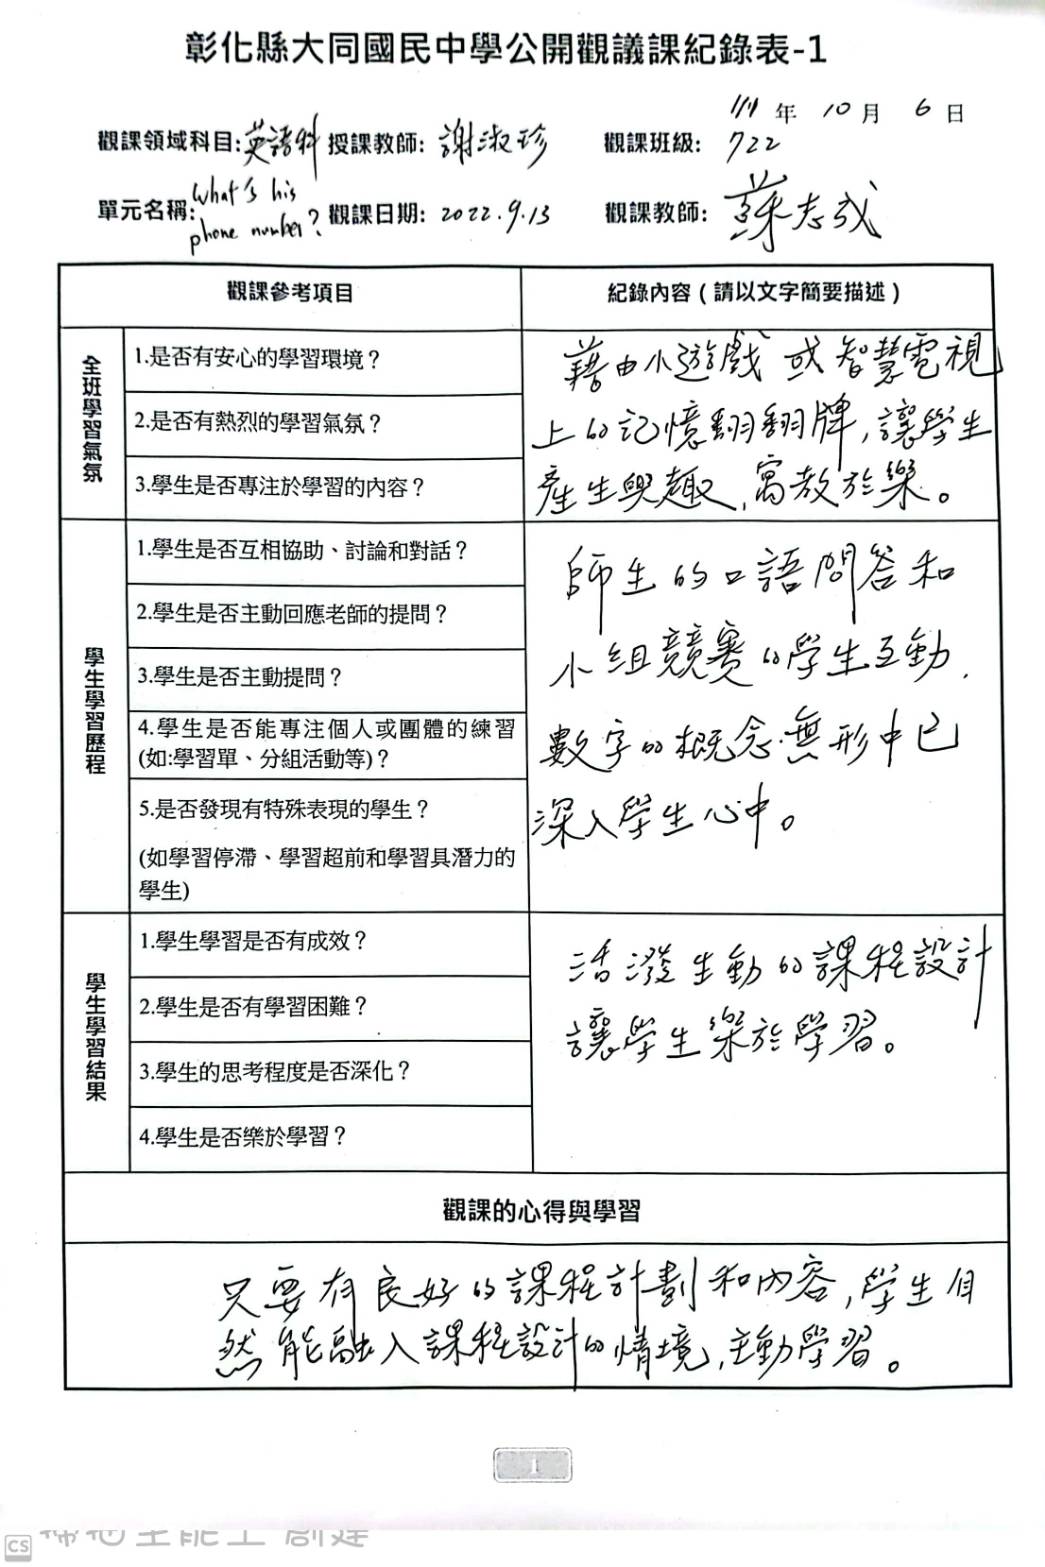 彰化縣大同國民中學公開觀議課紀錄表-1
111 年 10 月 6 日
觀課領域科目:英語科 授課教師: 謝淑珍 觀課班級: 722
單元名稱: What's his phone number? 觀課日期: 2022.9.13 觀課教師: 蘇志成
觀課參考項目 紀錄內容(請以文字簡要描述)
全班學習氣氛
1.是否有安心的學習環境?
2.是否有熱烈的學習氣氛?
3.學生是否專注於學習的內容?
藉由小遊戲 或智慧電視
上的記憶翻翻牌,讓學生
產生興趣,寓教於樂。
學生學習歷程
1.學生是否互相協助、討論和對話?
2.學生是否主動回應老師的提問?
3.學生是否主動提問?
4.學生是否能專注個人或團體的練習
(如:學習單、分組活動等)?
5.是否發現有特殊表現的學生?
(如學習停滯、學習超前和學習具潛力的
學生)
師生的口語問答和
小組競賽的學生互動,
數字的概念無形中已
深入學生心中。
學生學習結果
1.學生學習是否有成效?
2.學生是否有學習困難?
3.學生的思考程度是否深化?
4.學生是否樂於學習?
活潑生動的課程設計
讓學生樂於學習。
觀課的心得與學習
只要有良好的課程計劃和內容,學生自
然能融入課程設計的情境,主動學習。
1
CS